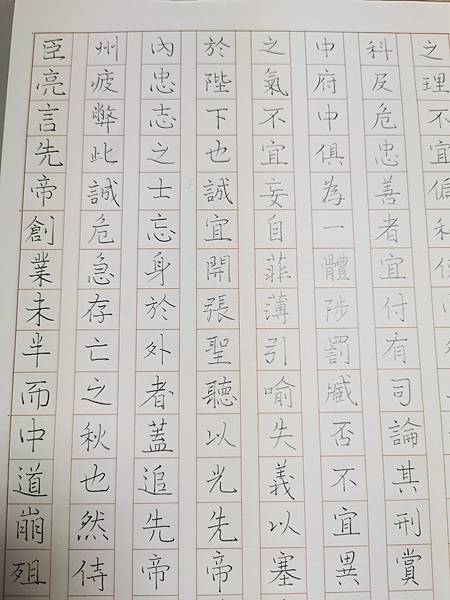 臣亮言先帝創業未半而中道崩殂
州疲弊此誠危急存亡之秋也然侍
內忠志之士忘身於外者蓋追先帝
於陛下也誠宜開張聖聽以光先帝
之氣不宜妄自菲薄引喻失義以塞
中府中俱為一體陟罰臧否不宜異
科及危忠善者宜付有司論其刑賞
之理不宜偏私